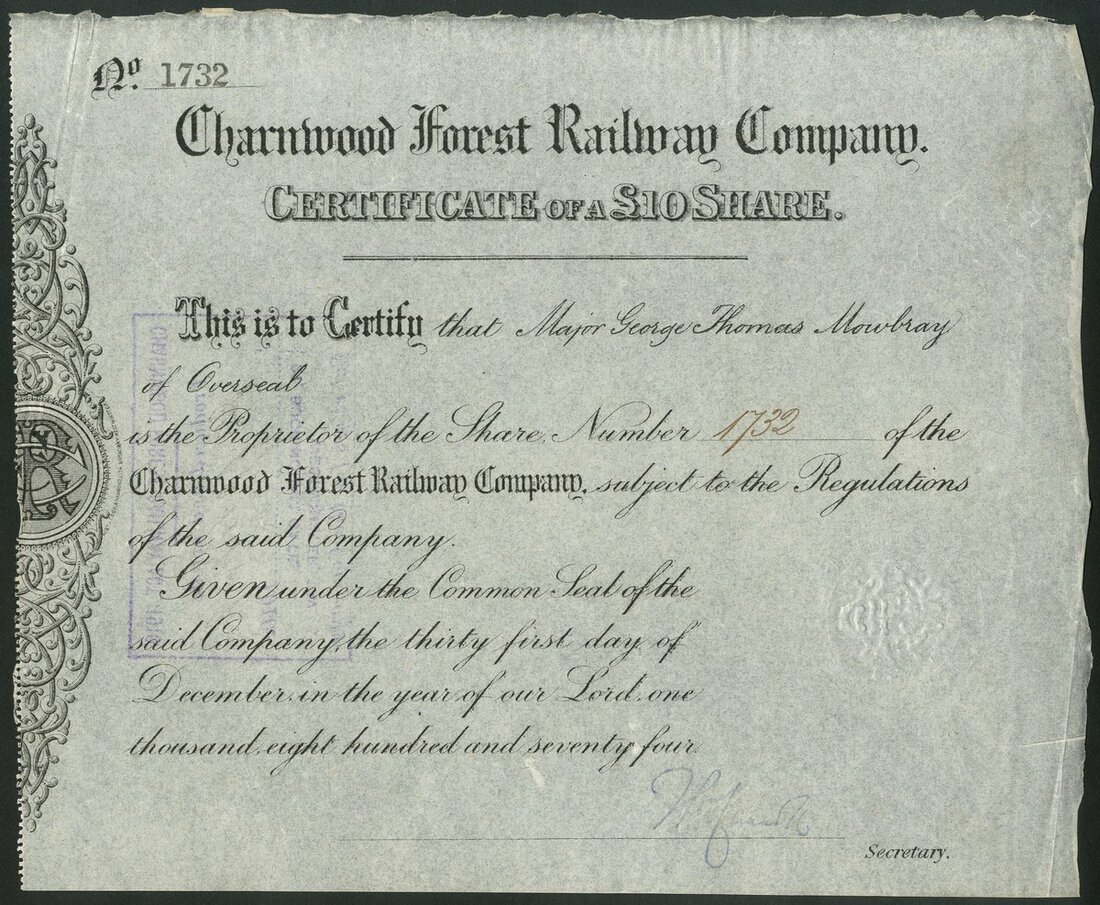 No. 1732
Charnwood Forest Railway Company.
CERTIFICATE OF A £10 SHARE.
This is to Certify that Major George Thomas Mowbray
of Overseal
is the Proprietor of the Share, Number 1732 of the
Charnwood Forest Railway Company, subject to the Regulations
of the said Company.
Given under the Common Seal of the
said Company, the thirty first day of
December, in the year of our Lord, one
thousand, eight hundred and seventy four.
Secretary.